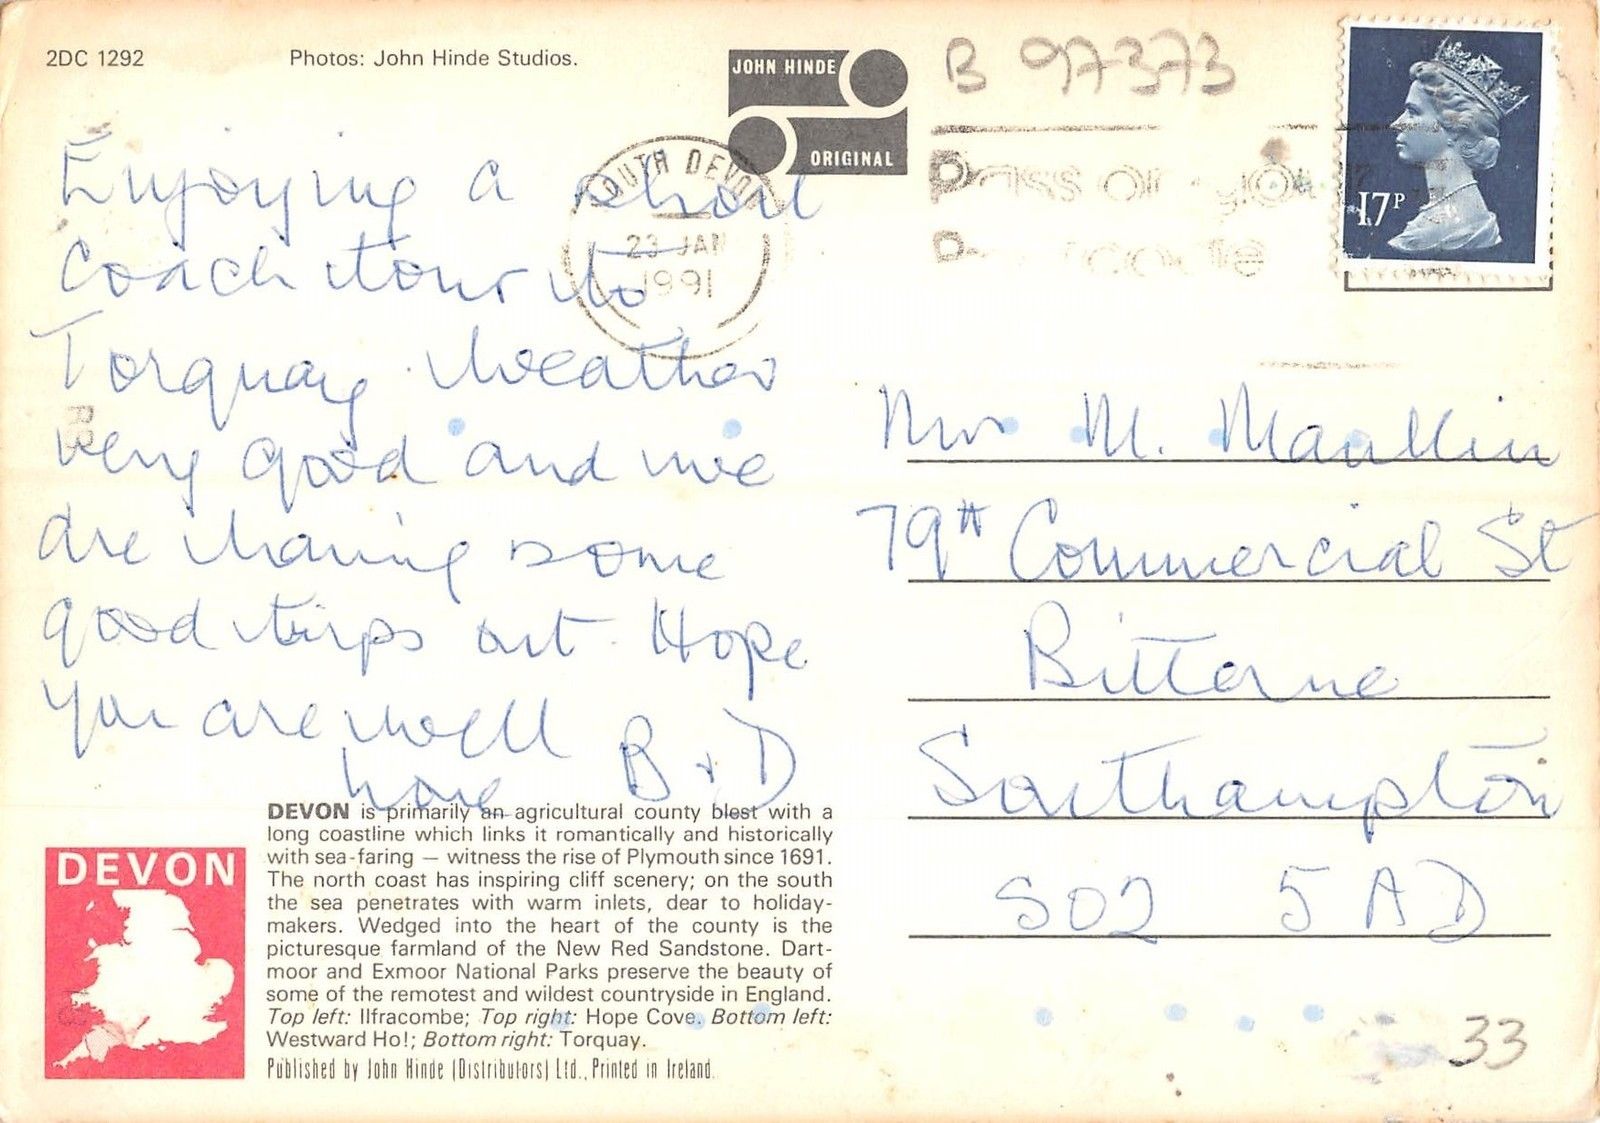 2DC 1292
Photos: John Hinde Studios.
JOHN HINDE
ORIGINAL
B 97373
SOUTH DEVON
23 JAN
1991
Pass on your
Postcode
17P
Enjoying a short
Coach tour to
Torquay. Weather
very good and we
are having some
good trips out. Hope
you are well
love B + D
Mrs M. Maullin
79A Commercial St
Bitterne
Southampton
SO2 5AD
DEVON
DEVON is primarily an agricultural county blest with a
long coastline which links it romantically and historically
with sea-faring — witness the rise of Plymouth since 1691.
The north coast has inspiring cliff scenery; on the south
the sea penetrates with warm inlets, dear to holiday-
makers. Wedged into the heart of the county is the
picturesque farmland of the New Red Sandstone. Dart-
moor and Exmoor National Parks preserve the beauty of
some of the remotest and wildest countryside in England.
Top left: Ilfracombe; Top right: Hope Cove. Bottom left:
Westward Ho!; Bottom right: Torquay.
Published by John Hinde (Distributors) Ltd., Printed in Ireland.
33